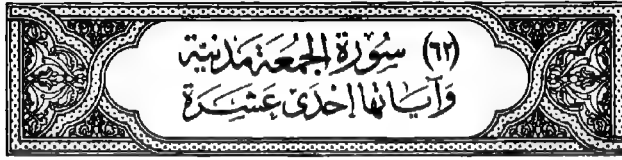 (٦٢) سُورَة الجُمُعَة مَدَنيَّة
وَآيَاتهَا إِحْدَىٰ عَشَرَة